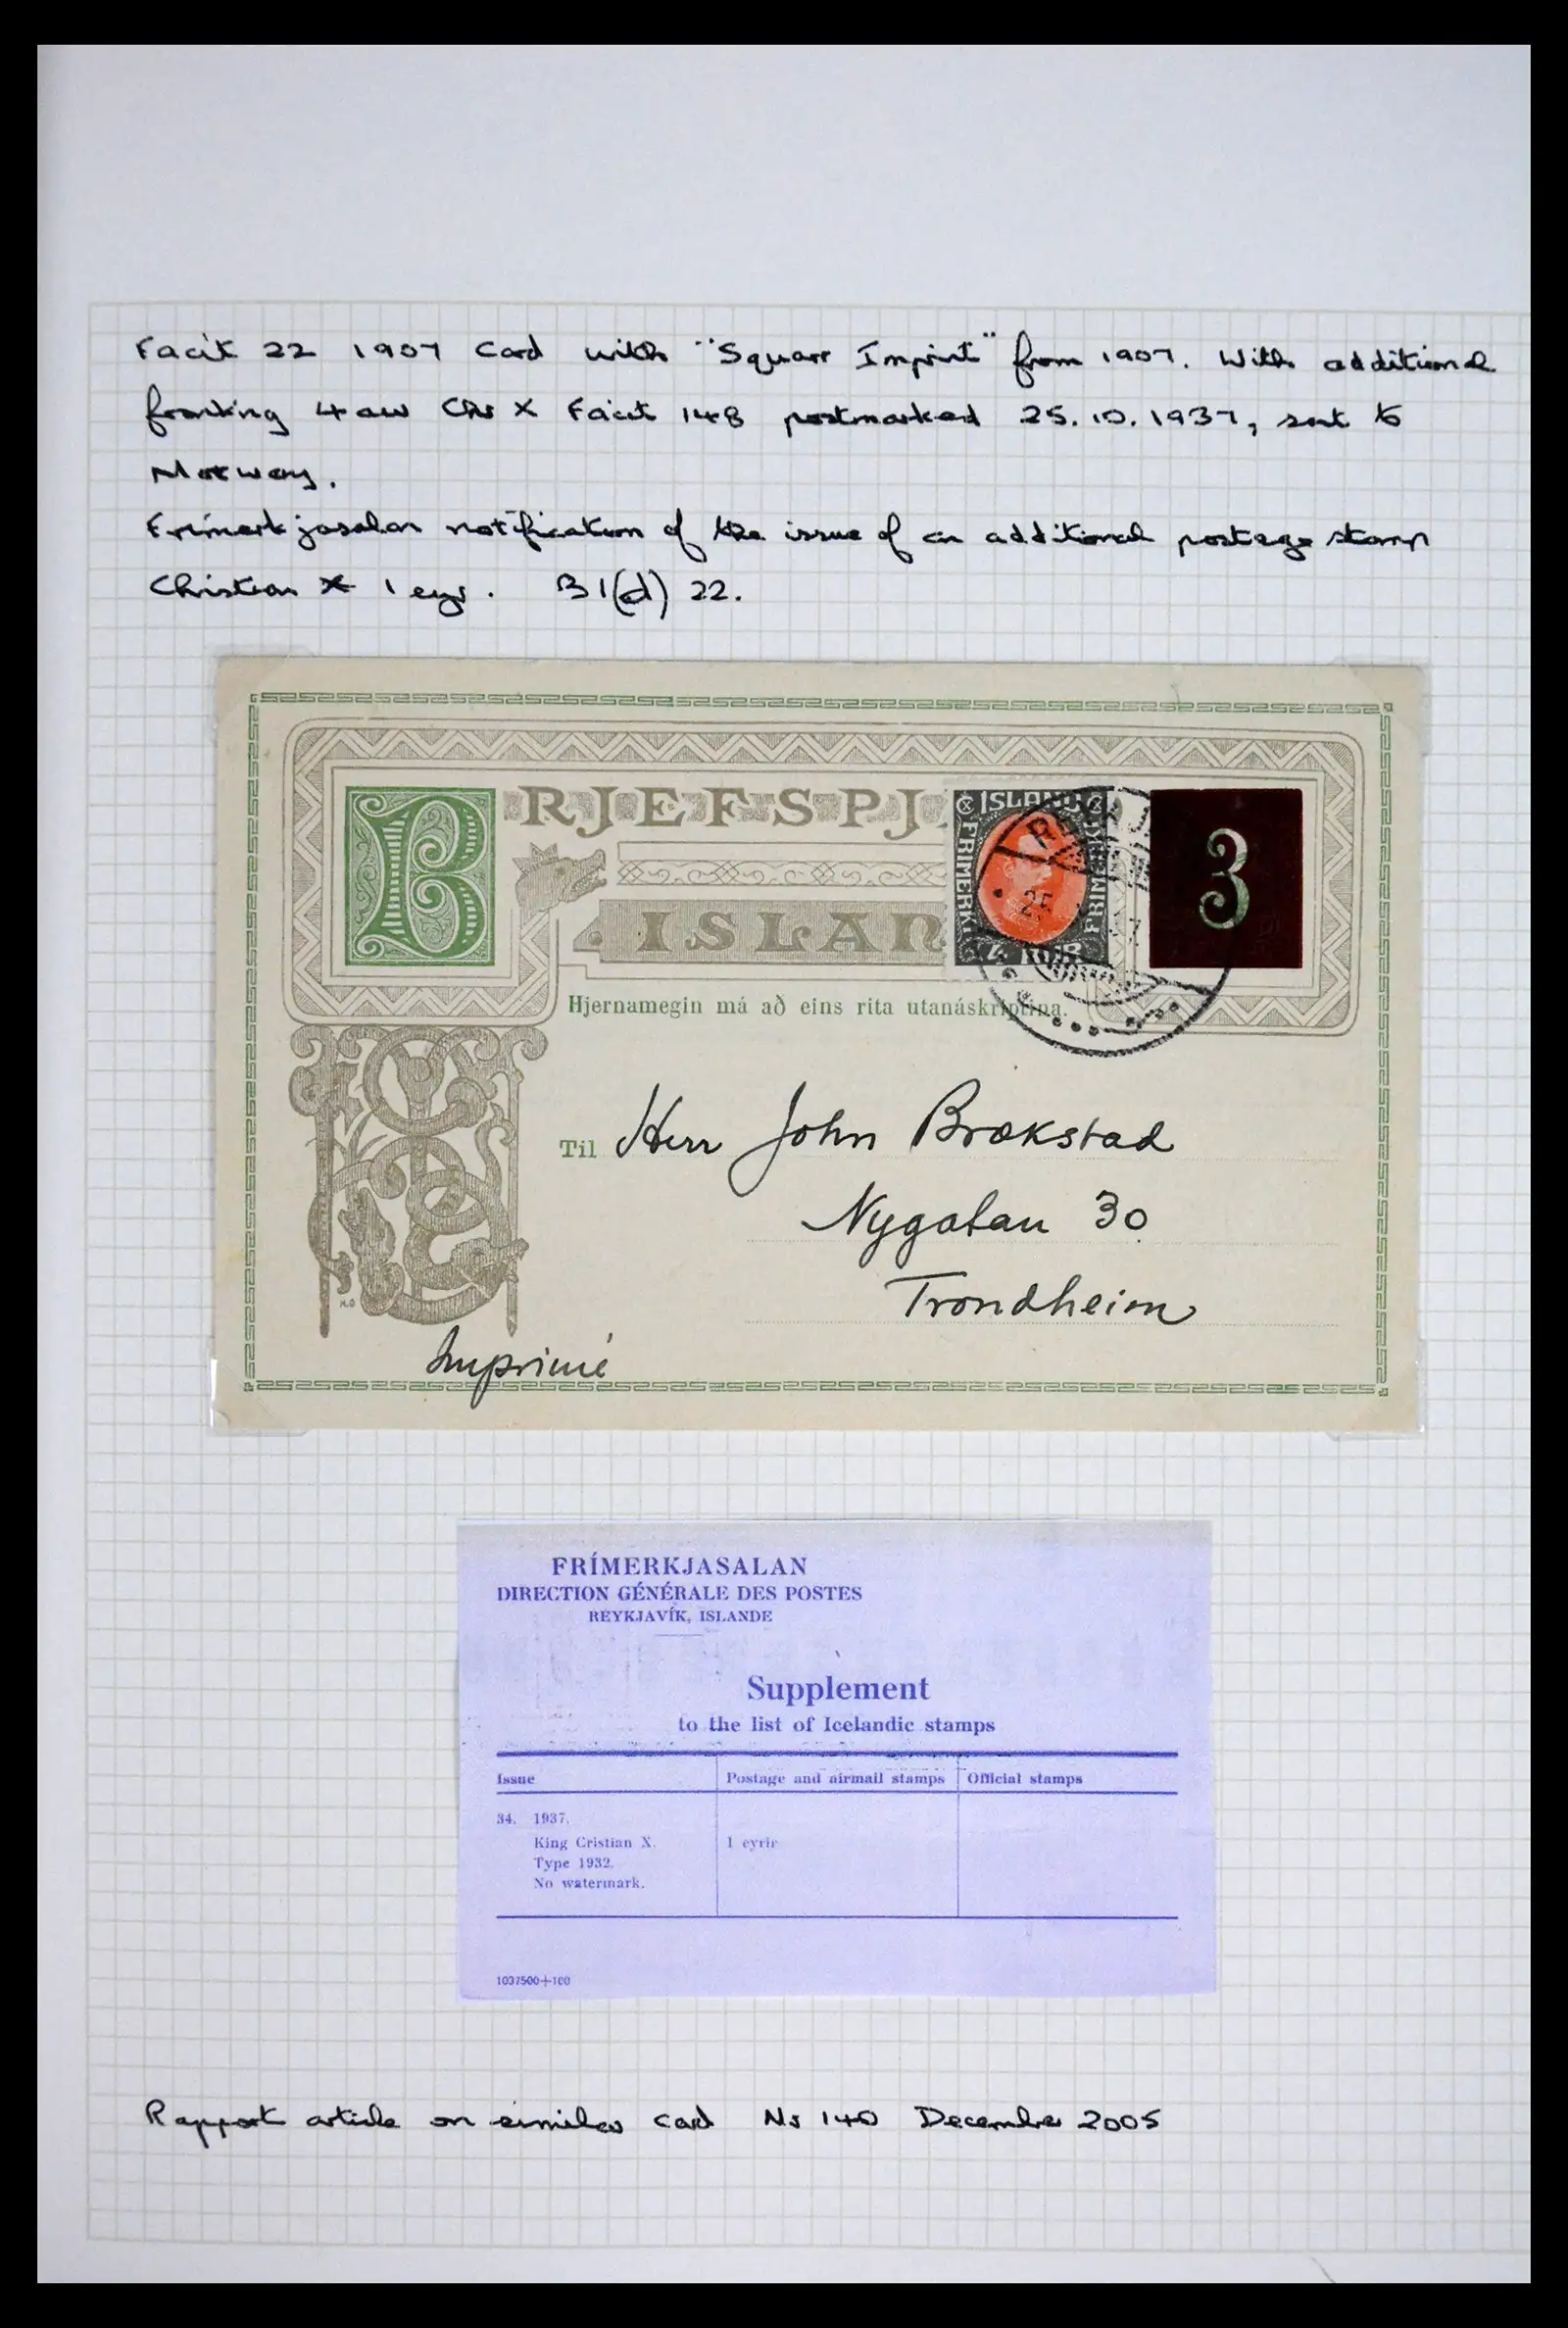 Facit 22 1907 Card with "Square Imprint" from 1907. With additional
franking 4 aur Chr X Facit 148 postmarked 25.10.1937, sent to
Norway.
Frímerkjasalan notification of the issue of an additional postage stamp
Christian X 1 eyr. B1(d) 22.
BRJEFSPJ
ISLAN
ISLAND
FRIMERKI
FRIMERKI
4 AUR
25
3
Hjernamegin má að eins rita utanáskriptina.
Til Herr John Brækstad
Nygatan 30
Trondheim
Imprimé
FRÍMERKJASALAN
DIRECTION GÉNÉRALE DES POSTES
REYKJAVÍK, ISLANDE
Supplement
to the list of Icelandic stamps
Issue Postage and airmail stamps Official stamps
34. 1937.
King Cristian X. 1 eyrir
Type 1932.
No watermark.
1037500+100
Rapport article on similar card Nr 140 December 2005